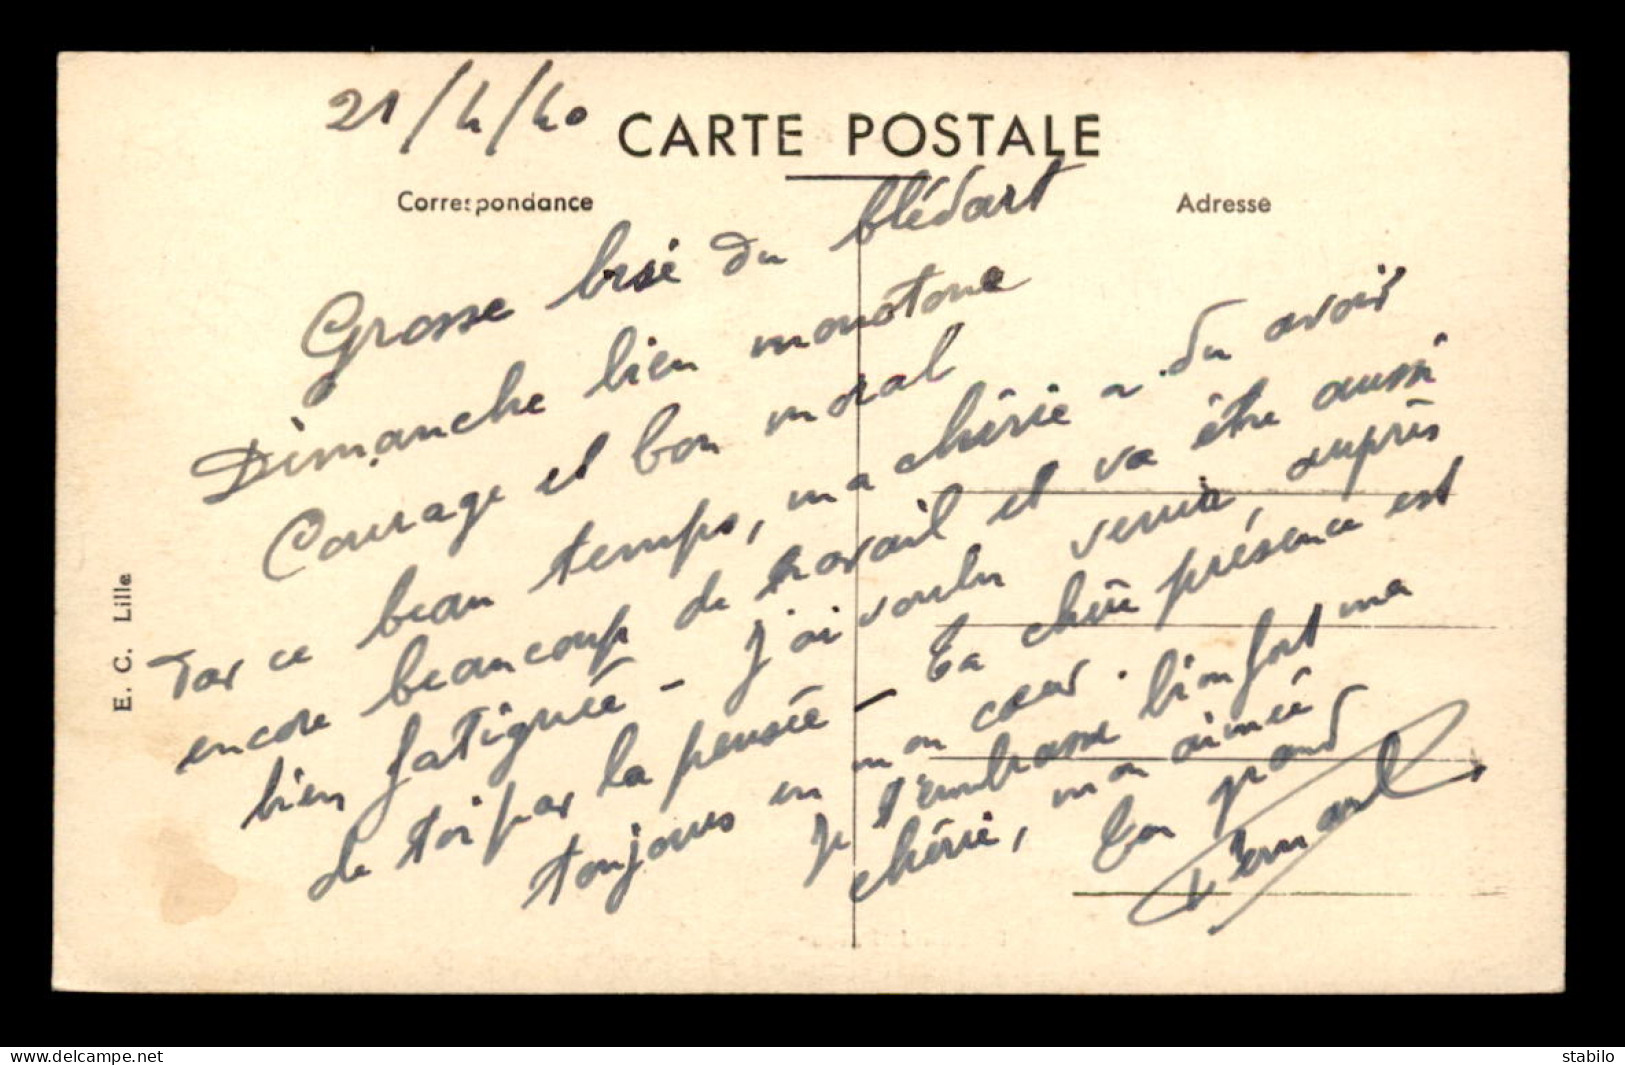 21/4/40
CARTE POSTALE
Correspondance
Adresse
Grosse bisé du blédart
Dimanche bien monotone
Courage et bon moral
Par ce beau temps, ma chérie a du avoir
encore beaucoup de travail et va être aussi
bien fatiguée - J'ai voulu venir, auprès
de toi par la pensée - Ta chère présence est
toujours en mon cœur.
Je t'embrasse bien fort ma
chérie, mon aimée
Ton grand
Fernand
E. C. Lille
www.delcampe.net
stabilo